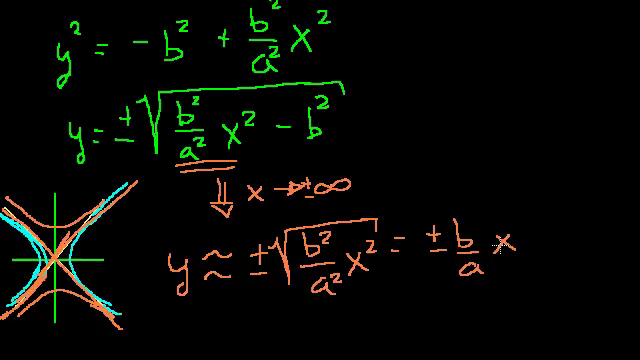 y² = - b² + b²/a² x²
y = ± √(b²/a² x² - b²)
⇓ x → ±∞
y ≈ ± √(b²/a² x²) = ± b/a x